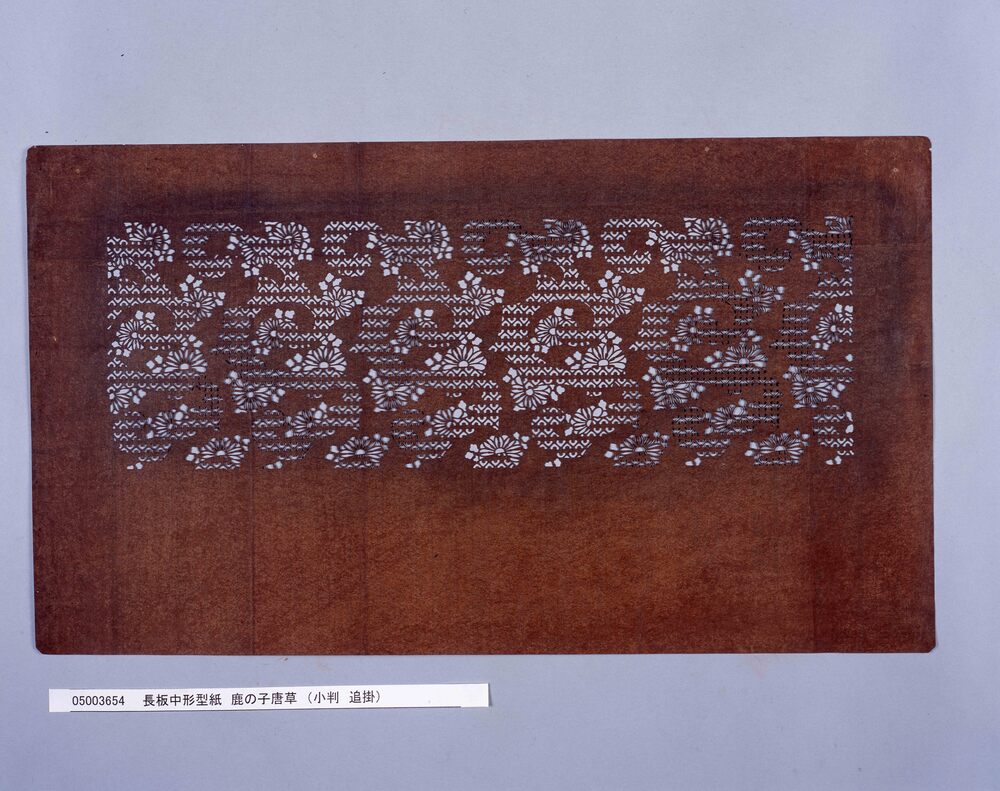 05003654 長板中形型紙 鹿の子唐草（小判 追掛）